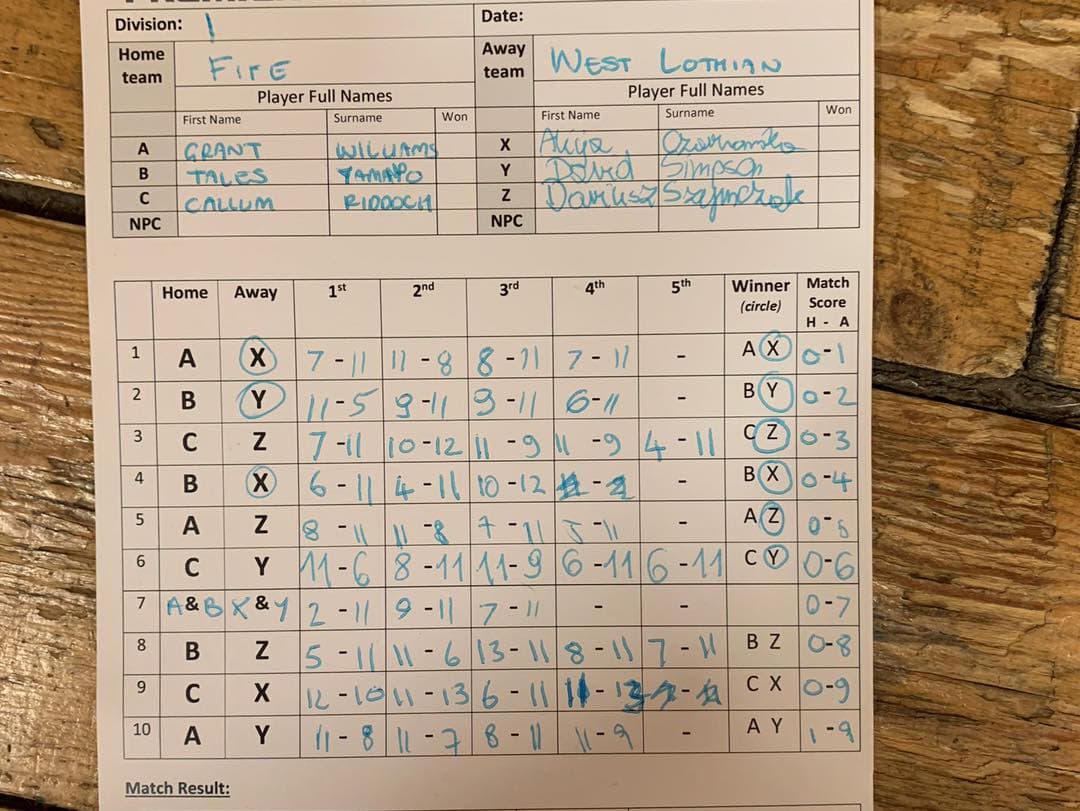 Division: 1 Date:
Home team FIFE Away team WEST LOTHIAN
Player Full Names Player Full Names
First Name Surname Won First Name Surname Won
A GRANT WILLIAMS X Alicja
B TALES YAMATO Y David Simpson
C CALLUM RIDDOCH Z Dariusz Szajnczak
NPC NPC
Home Away 1st 2nd 3rd 4th 5th Winner (circle) Match Score H - A
1 A X 7-11 11-8 8-11 7-11 - A X 0-1
2 B Y 11-5 9-11 9-11 6-11 - B Y 0-2
3 C Z 7-11 10-12 11-9 11-9 4-11 C Z 0-3
4 B X 6-11 4-11 10-12 - - B X 0-4
5 A Z 8-11 11-8 7-11 5-11 - A Z 0-5
6 C Y 11-6 8-11 11-9 6-11 6-11 C Y 0-6
7 A&B X&Y 2-11 9-11 7-11 - - 0-7
8 B Z 5-11 11-6 13-11 8-11 7-11 B Z 0-8
9 C X 12-10 11-13 6-11 11-13 - C X 0-9
10 A Y 11-8 11-7 8-11 11-9 - A Y 1-9
Match Result: